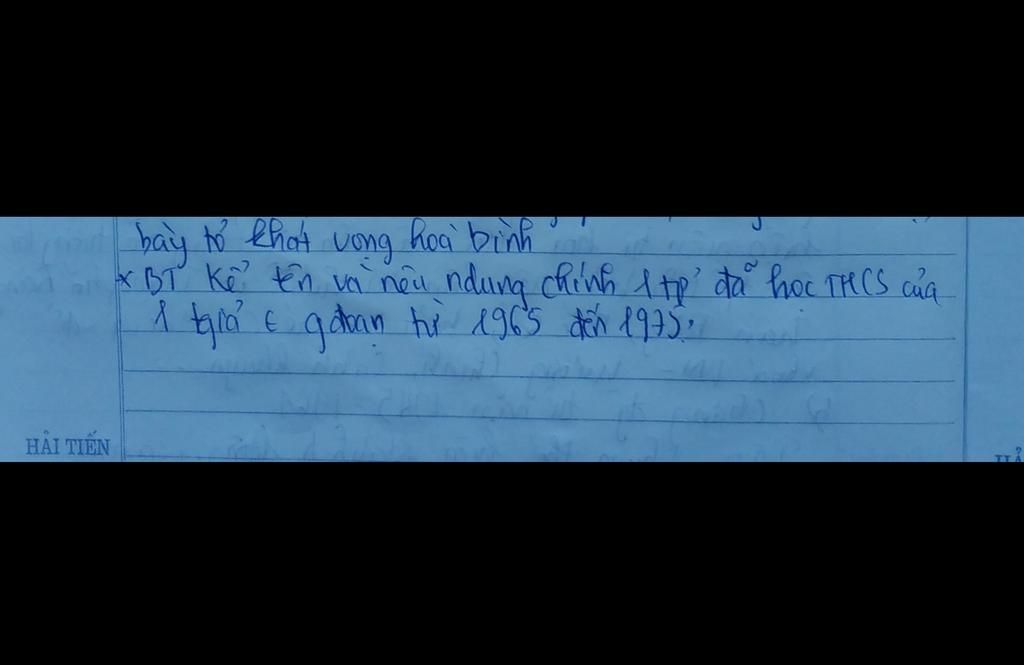 bày tỏ khát vọng hoà bình
* BT Kể tên và nêu ndung chính 1 tp' đã học THCS của
1 tgiả ∈ gđoạn từ 1965 đến 1975.
HẢI TIẾN